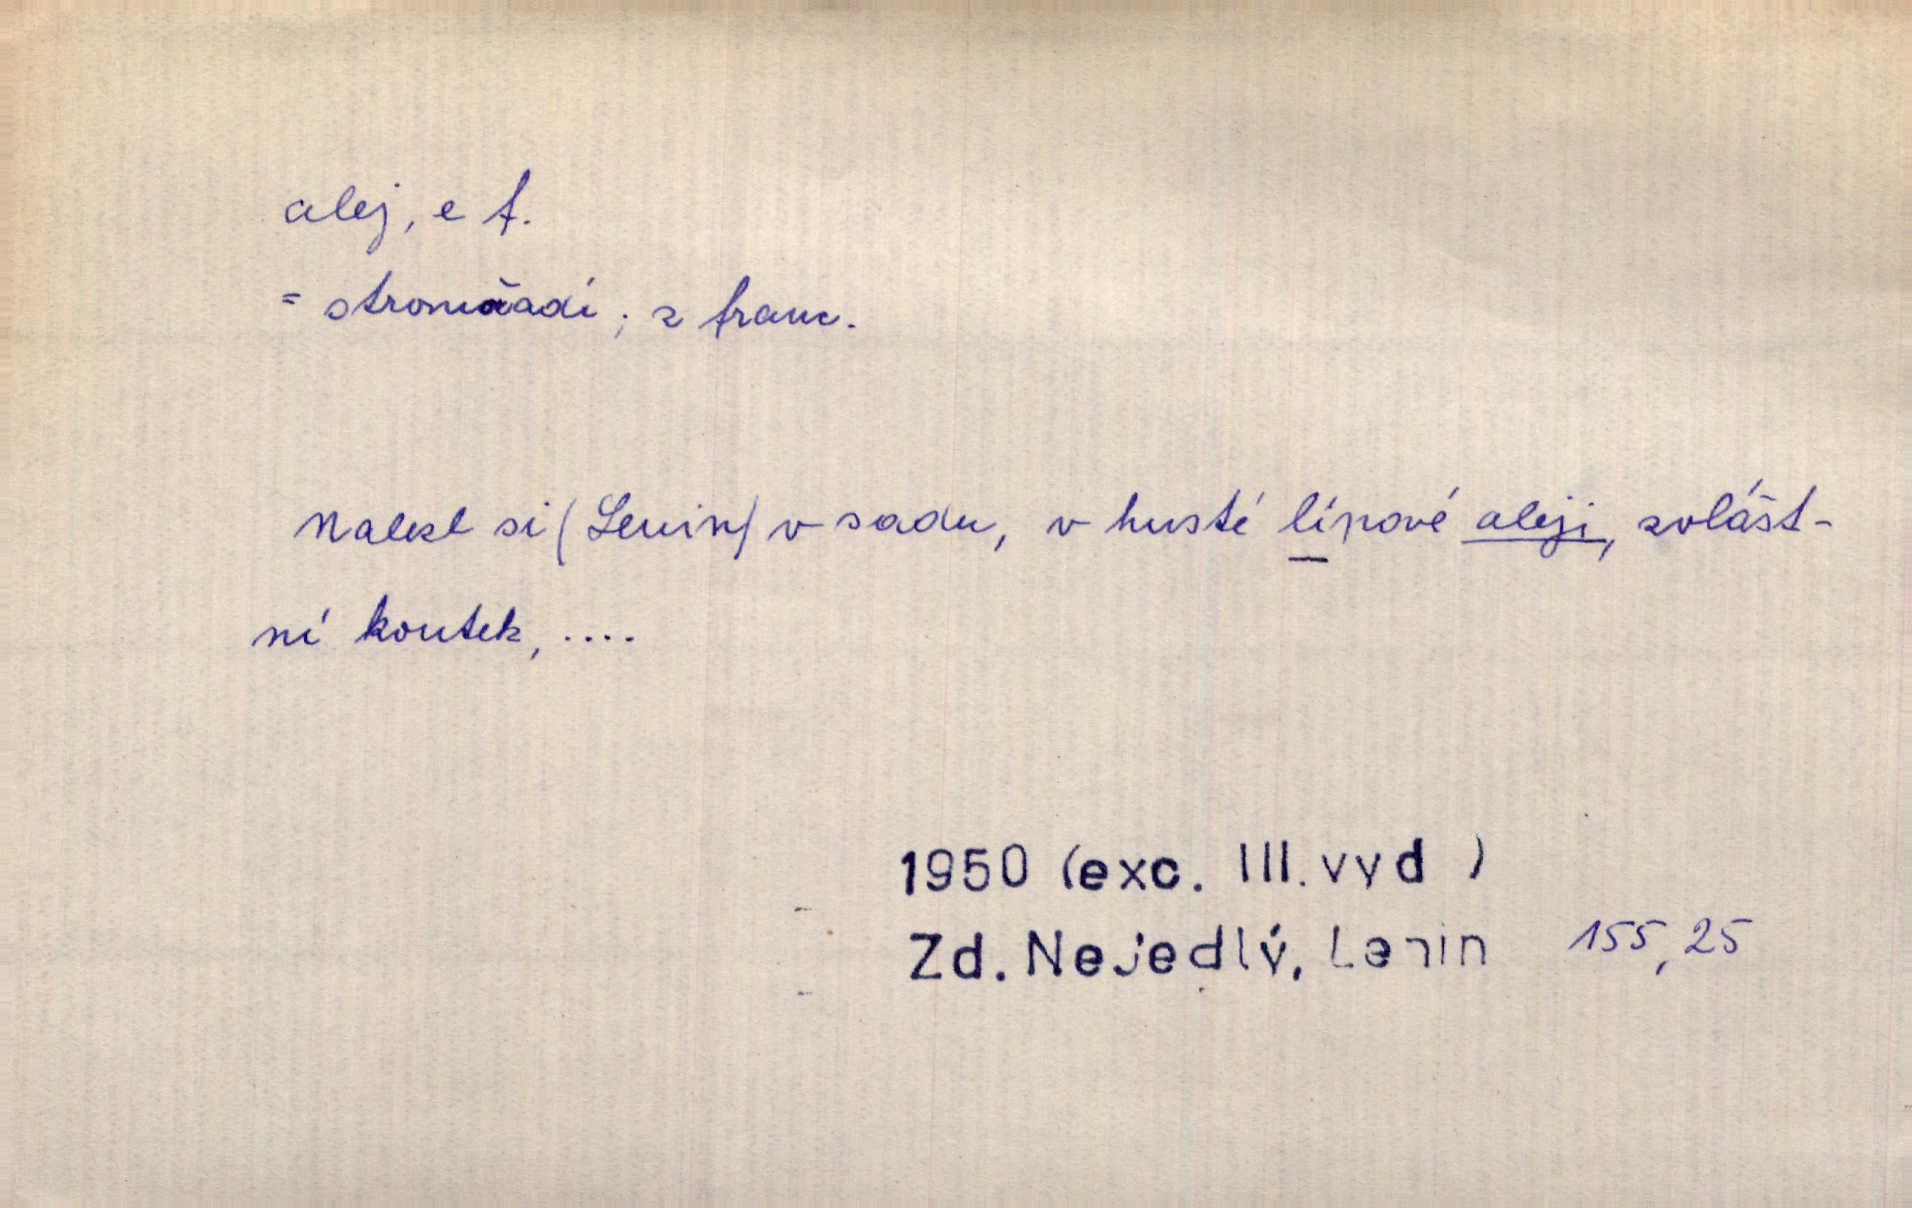 alej, e f.
= stromořadí; z franc.
Nalezl si (Lenin) v sadu, v husté lípové aleji, zvlášt-
ní koutek, ....
1950 (exc. III. vyd )
Zd. Nejedlý, Lenin 155, 25